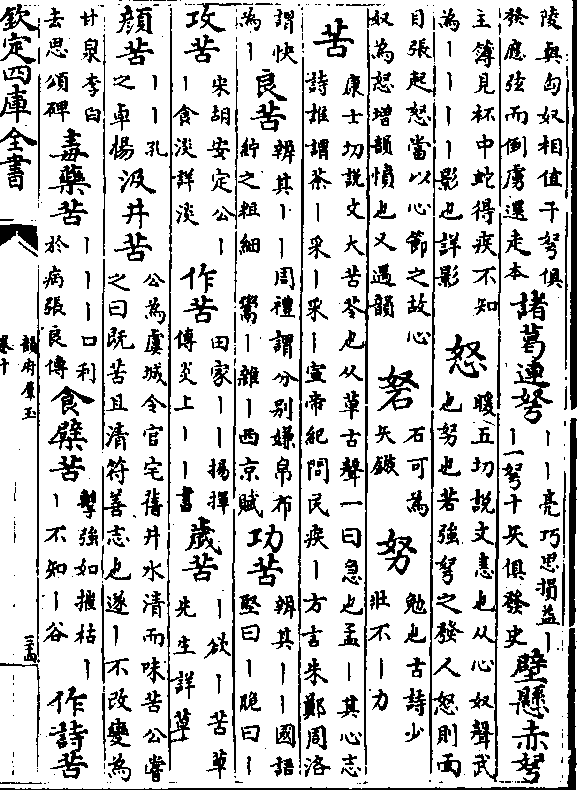 陵與匈奴相值千弩俱
發應弦而倒虜還走本
諸葛連弩
丨丨亮巧思損益丨
丨一弩十矢俱發史
壁懸赤弩
主簿見杯中蛇得疾不知
為丨丨丨丨影也詳影
怒
暖五切說文恚也从心奴聲武
也努也若強弩之發人怒則面
目張起怒當以心節之故心
奴為怒增韻憤也又遇韻
砮
石可為
矢鏃
努
勉也古詩少
壯不丨力
苦
康士切說文大苦苓也从草古聲一曰急也孟丨其心志
詩誰謂荼丨采丨采丨宣帝紀問民疾丨方言朱鄭周洛
謂快
為丨
良苦
辨其丨丨周禮謂分别嫌帛布
紵之粗細 鬻丨雜丨西京賦
功苦
辨其丨丨國語
堅曰丨脆曰丨
攻苦
宋胡安定公丨
丨食淡詳淡
作苦
田家丨丨揚揮
傳炎上丨丨書
歲苦
丨欲丨苦草
先生詳草
顔苦
丨丨孔
之卓楊
汲井苦
公為虞城令官宅舊井水清而味苦公嘗
之曰既苦且清符善志也遂丨不改變為
甘泉李白
去思頌碑
毒藥苦
丨丨丨口利
於病張良傳
食檗苦
擊強如摧枯丨
丨不知丨谷
作詩苦
欽定四庫全書
韻府羣玉
卷十